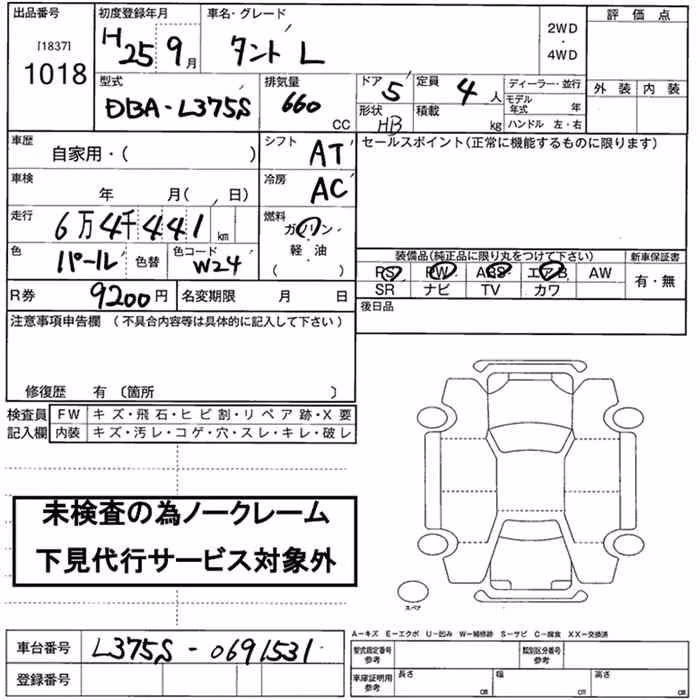 出品番号 初度登録年月 車名・グレード 評価点
[1837] 1018 H 25 9月 タント L 2WD・4WD
型式 排気量 ドア 定員 ディーラー・並行 外装 内装
DBA-L375S 660 CC 5 4人 モデル年式 年
形状 HB 積載 kg ハンドル 左・右
車歴 自家用・( ) シフト AT セールスポイント(正常に機能するものに限ります)
車検 年 月( 、 日) 冷房 AC
走行 6万4千441 km 燃料 ガソリン・軽油 ( )
色 パール 色替 色コード W24
装備品(純正品に限り丸をつけて下さい) 新車保証書
PS PW ABS エアB AW 有・無
SR ナビ TV カワ
R券 9200円 名変期限 月 日 後日品
注意事項申告欄 (不具合内容等は具体的に記入して下さい)
修復歴 有 〔箇所 〕
検査員 FW キズ・飛石・ヒビ割・リペア跡・X要
記入欄 内装 キズ・汚レ・コゲ・穴・スレ・キレ・破レ
未検査の為ノークレーム
下見代行サービス対象外
スペア
A-キズ E-エクボ U-凹み W-補修跡 S-サビ C-腐食 XX-交換済
車台番号 L375S-0691531 型式指定番号 参考 類別区分番号 参考
登録番号 車庫証明用 参考 長さ cm 幅 cm 高さ cm